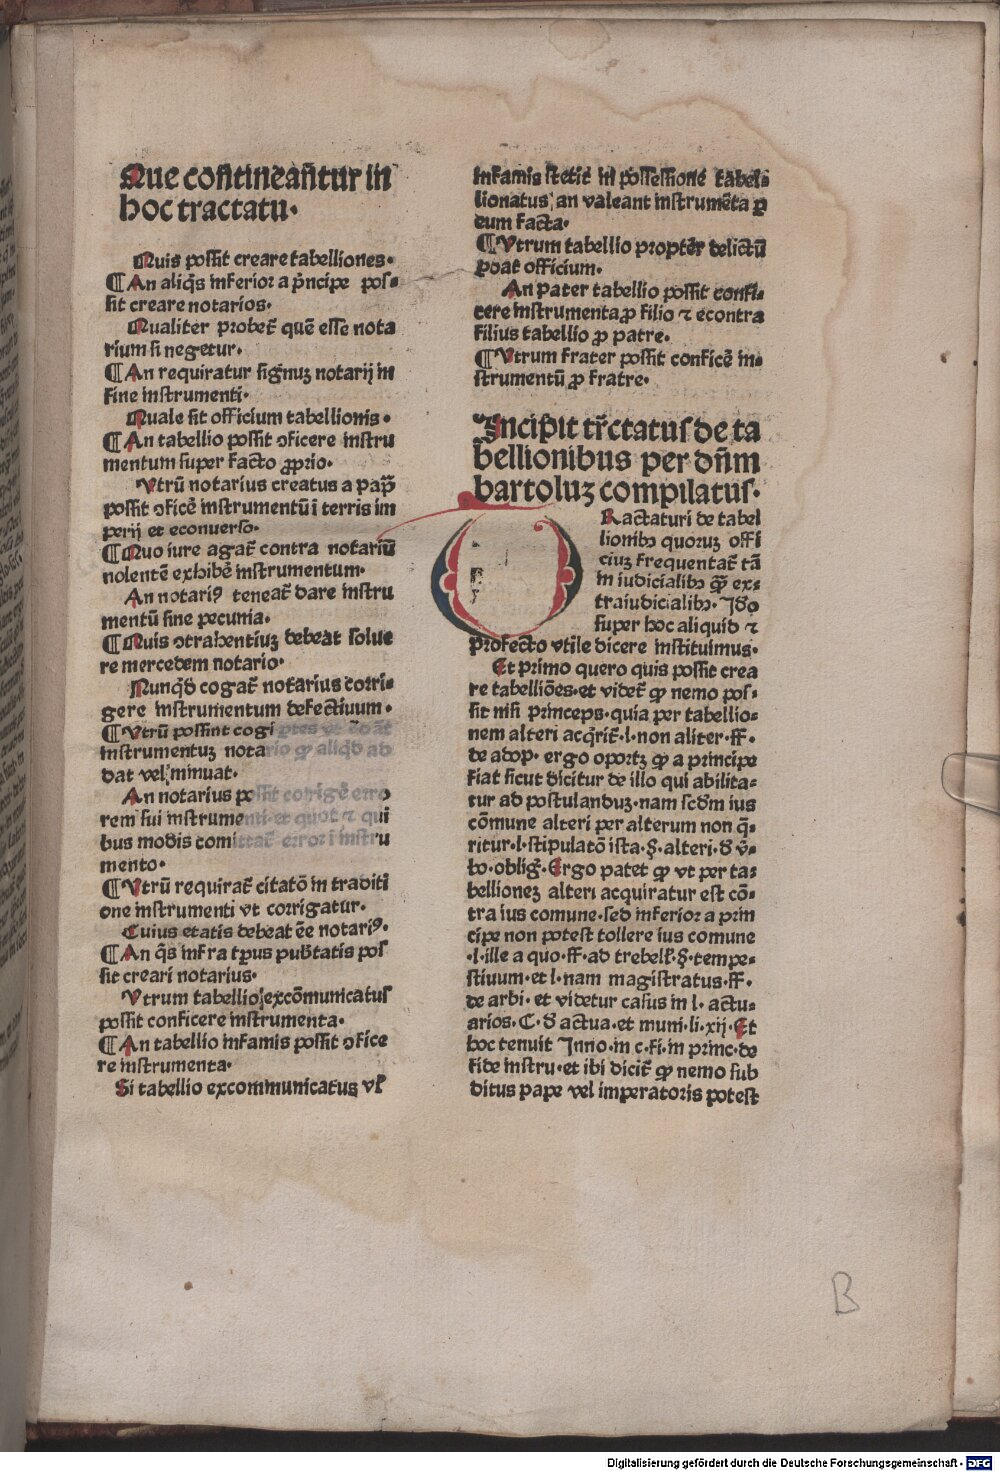 Que contineantur in
hoc tractatu·
Quis possit creare tabelliones·
¶ An aliq̄s inferior a p̄ncipe pos⸗
sit creare notarios·
Qualiter probet᷑ quē esse nota
rium si negetur·
¶ An requiratur signuꝫ notarij in
fine instrumenti·
Quale sit officium tabellionis·
¶ An tabellio possit ꝯficere instru
mentum super facto ꝓprio·
Vtrū notarius creatus a pap̄
possit ꝯficē instrumentū ī terris im
perij et econuerso·
¶ Quo iure agat᷑ contra notariū
nolentē exhibē instrumentum·
An notariꝰ teneat᷑ dare instru
mentū sine pecunia·
¶ Quis ꝯtrahentiuꝫ debeat solue
re mercedem notario·
Nunqd̄ cogat᷑ notarius corri⸗
gere instrumentum defectiuum·
¶ Vtrū possint cogi ptes vt ēdat
instrumentuꝫ notario ꝙ aliqd̄ ad
dat vel minuat·
An notarius possit corrigē erro
rem sui instrumenti·et quot ⁊ qui
bus modis comittat᷑ error ī instru
mento·
¶ Vtrū requirat᷑ citatō in traditi
one instrumenti vt corrigatur·
Cuius etatis debeat ēe notariꝰ·
¶ An q̄s infra tp̄us pub̄tatis pos
sit creari notarius·
Vtrum tabellio excōmunicatus
possit conficere instrumenta·
¶ An tabellio infamis possit ꝯfice
re instrumenta·
Si tabellio excommunicatus vl̄
infamis stetit in possessione tabel⸗
lionatus, an valeant instrumēta ꝑ
eum facta·
¶ Vtrum tabellio propter delictū
ꝑdat officium·
An pater tabellio possit confi⸗
cere instrumenta ꝓ filio ⁊ econtra
filius tabellio ꝓ patre·
¶ Vtrum frater possit conficē in⸗
strumentū ꝓ fratre·
Incipit tr̄ctatus de ta
bellionibus per dn̄m
bartoluꝫ compilatus·
Ractaturi de tabel
lionibꝫ quoruꝫ offi
ciuꝫ frequentat᷑ tā
in iudicialibꝫ ꝙ̄ ex⸗
traiudicialibꝫ· Idō
super hoc aliquid ⁊
profecto vtile dicere instituimus·
Et primo quero quis possit crea
re tabelliōes·et videt᷑ ꝙ nemo pos⸗
sit nisi princeps·quia per tabellio⸗
nem alteri acq̄rit᷑·l·non aliter·ff·
de adop· ergo oportꝫ ꝙ a principe
fiat sicut dicitur de illo qui abilita⸗
tur ad postulanduꝫ·nam scd̄m ius
cōmune alteri per alterum non q̄⸗
ritur·l·stipulatō ista·§·alteri·đ v̄·
bo·obliḡ·Ergo patet ꝙ vt per ta⸗
bellionez alteri acquiratur est cō⸗
tra ius comune·sed inferior a prin
cipe non potest tollere ius comune
·l·ille a quo·ff·ad trebell̄·§·tempe⸗
stiuum·et·l·nam magistratus·ff·
de arbi·et videtur casus in l·actu⸗
arios·C·đ actua·et muni·li·xij·Et
hoc tenuit Inno·in c·fi·in princ·de
fide instru·et ibi dicit᷑ ꝙ nemo sub
ditus pape vel imperatoris potest
B
Digitalisierung gefördert durch die Deutsche Forschungsgemeinschaft - DFG